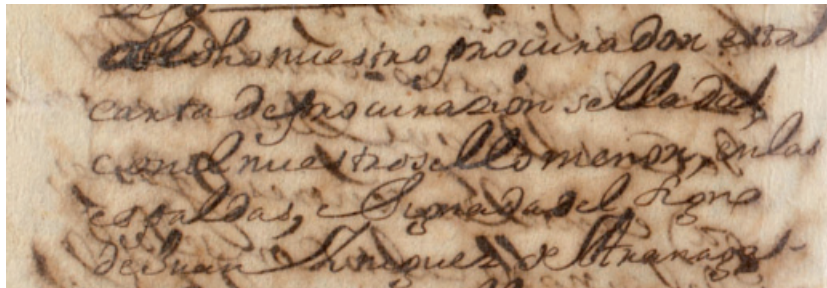 al dho nuestro procurador esta
carta de procurazion sellada
con el nuestro sello menor, en las
espaldas, e signada del signo
de Juan Yñiguez de